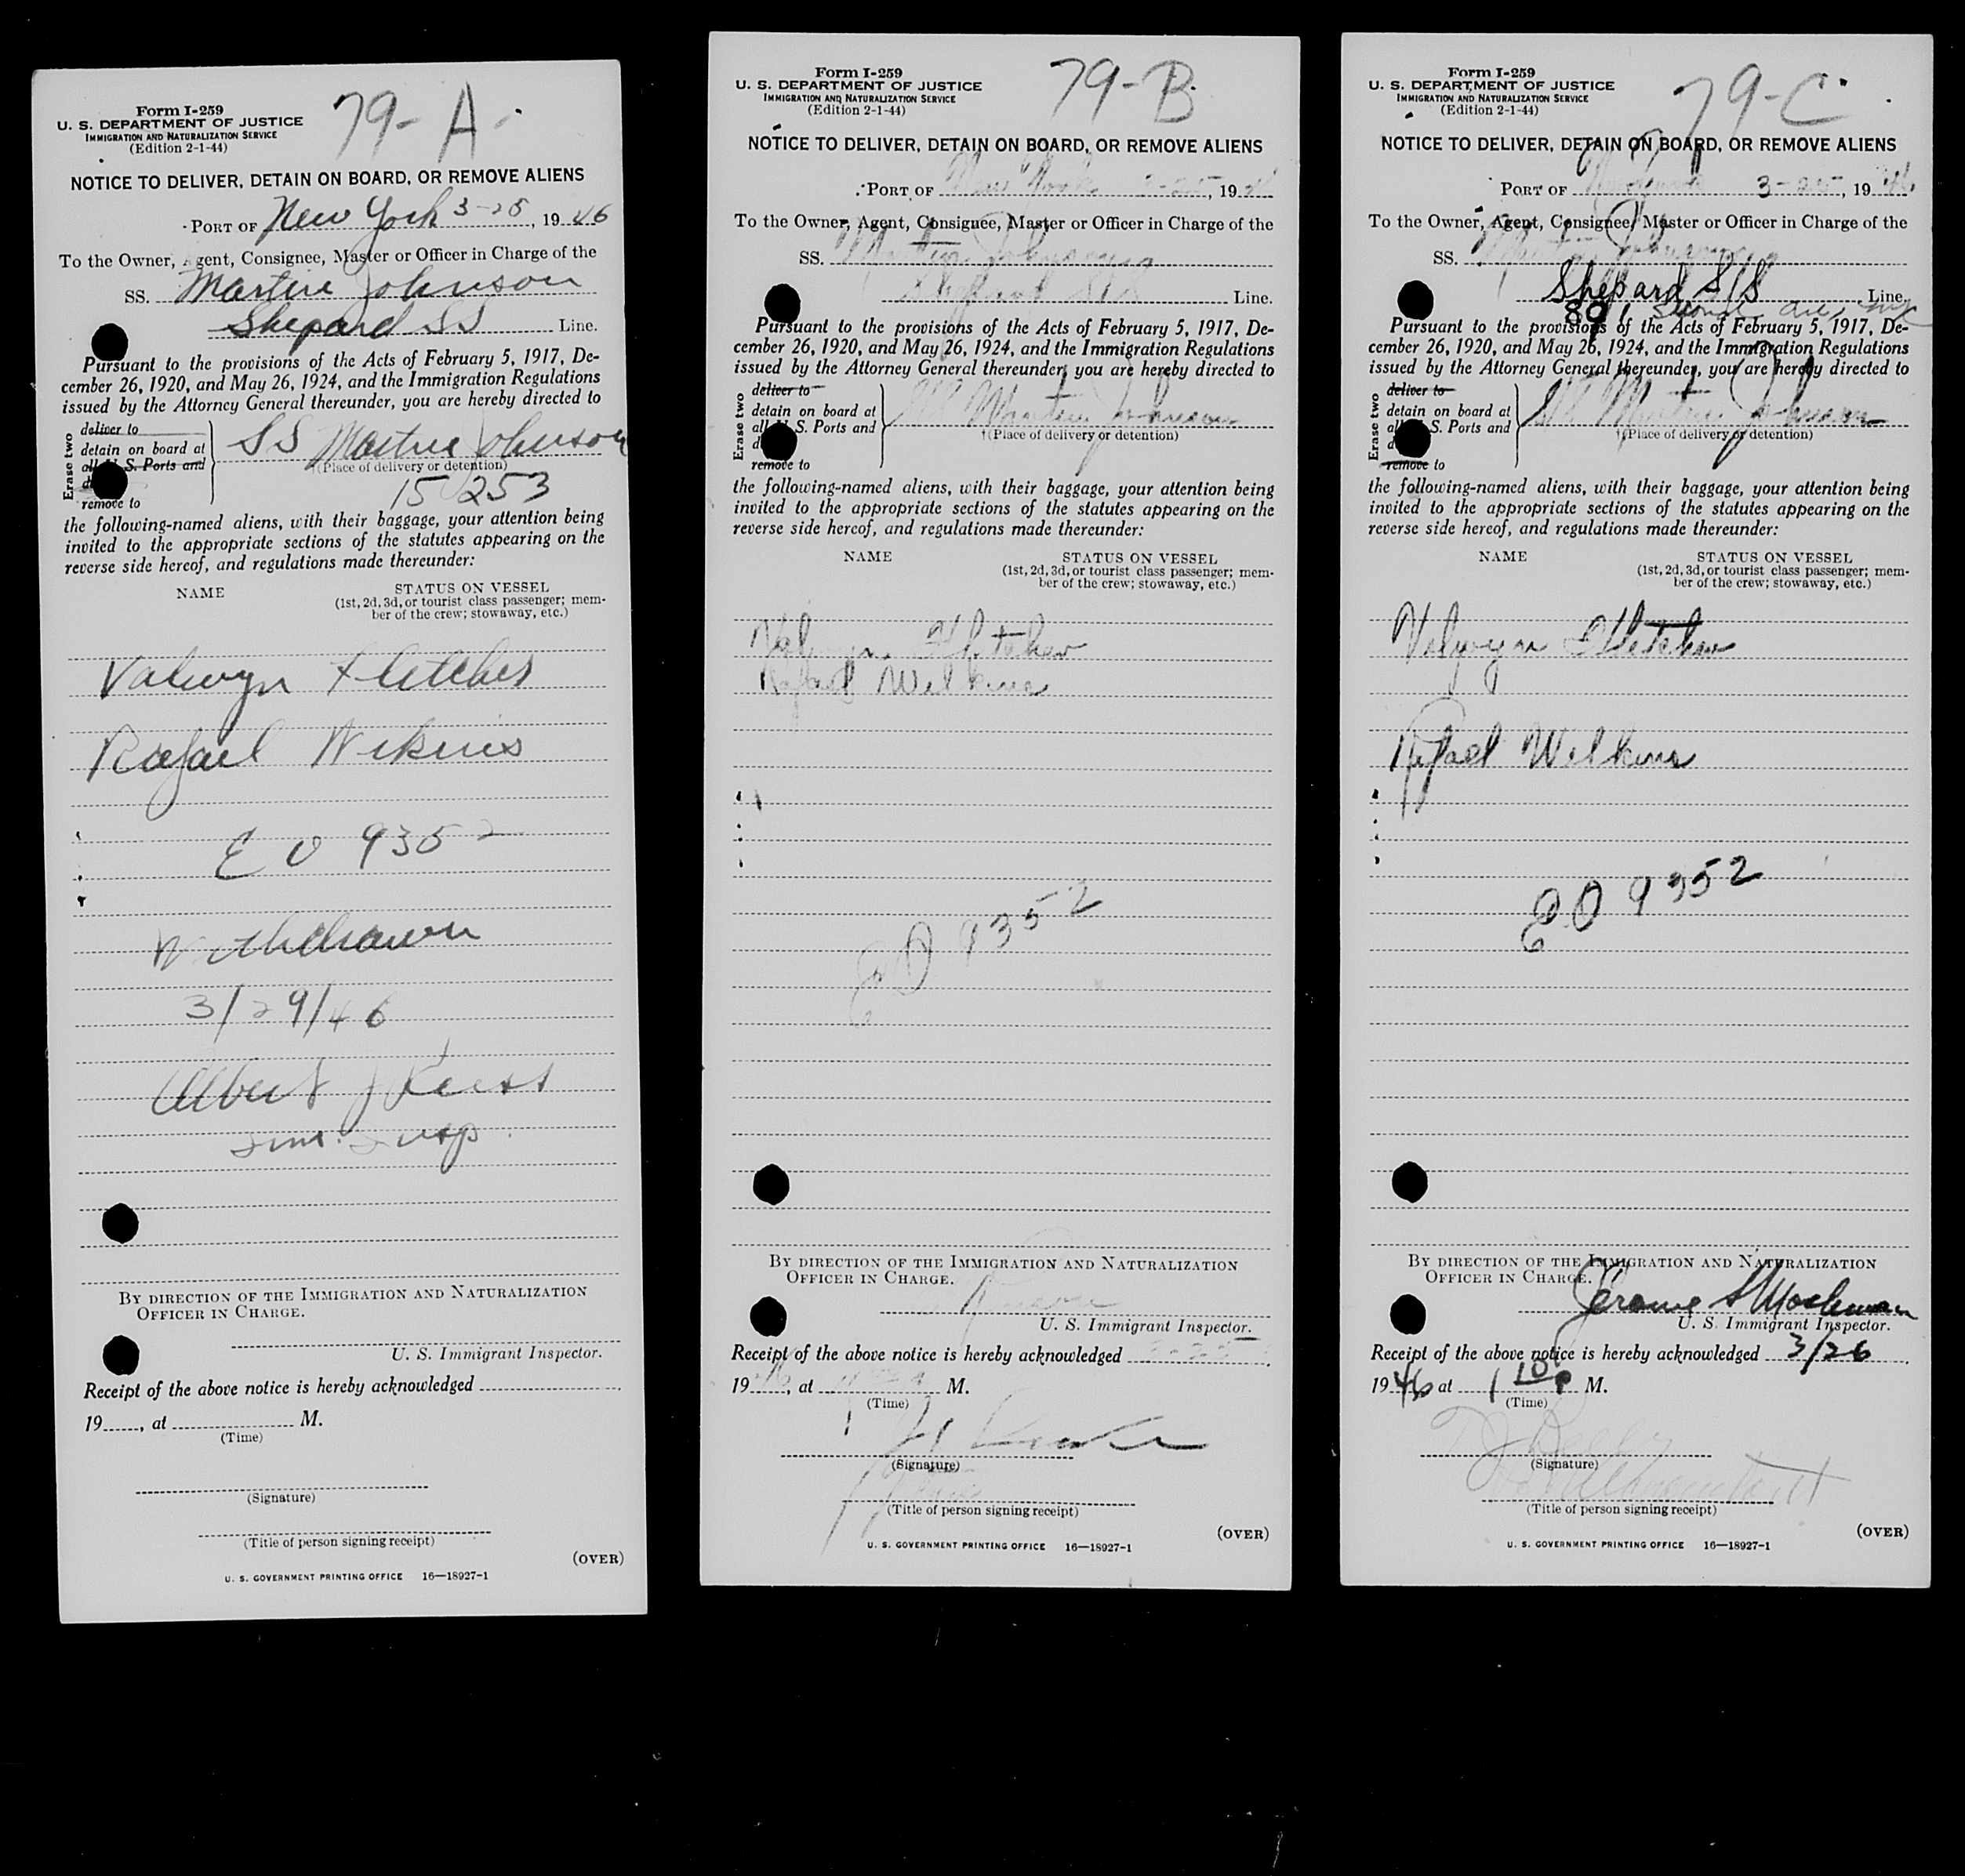 79-A
Form I-259
U. S. DEPARTMENT OF JUSTICE
IMMIGRATION AND NATURALIZATION SERVICE
(Edition 2-1-44)
NOTICE TO DELIVER, DETAIN ON BOARD, OR REMOVE ALIENS
PORT OF New York 3-25, 1946
To the Owner, Agent, Consignee, Master or Officer in Charge of the
SS. Martin Johnson
Shepard SS Line.
Pursuant to the provisions of the Acts of February 5, 1917, De-
cember 26, 1920, and May 26, 1924, and the Immigration Regulations
issued by the Attorney General thereunder, you are hereby directed to
Erase two
deliver to
detain on board at
all U. S. Ports and
remove to
SS Martin Johnson
(Place of delivery or detention)
15 253
the following-named aliens, with their baggage, your attention being
invited to the appropriate sections of the statutes appearing on the
reverse side hereof, and regulations made thereunder:
NAME STATUS ON VESSEL
(1st, 2d, 3d, or tourist class passenger; mem-
ber of the crew; stowaway, etc.)
Valwyn Fletcher
Rafael Wikins
E O 9352
Withdrawn
3/29/46
Albert J
Imm. Insp.
BY DIRECTION OF THE IMMIGRATION AND NATURALIZATION
OFFICER IN CHARGE.
U. S. Immigrant Inspector.
Receipt of the above notice is hereby acknowledged
19, at M.
(Time)
(Signature)
(Title of person signing receipt)
(OVER)
U. S. GOVERNMENT PRINTING OFFICE 16—18927-1
79-B
Form I-259
U. S. DEPARTMENT OF JUSTICE
IMMIGRATION AND NATURALIZATION SERVICE
(Edition 2-1-44)
NOTICE TO DELIVER, DETAIN ON BOARD, OR REMOVE ALIENS
PORT OF New York 3-25, 1946
To the Owner, Agent, Consignee, Master or Officer in Charge of the
SS. Martin Johnson
Shepard S/S Line.
Pursuant to the provisions of the Acts of February 5, 1917, De-
cember 26, 1920, and May 26, 1924, and the Immigration Regulations
issued by the Attorney General thereunder, you are hereby directed to
Erase two
deliver to
detain on board at
all U. S. Ports and
remove to
SS Martin Johnson
(Place of delivery or detention)
the following-named aliens, with their baggage, your attention being
invited to the appropriate sections of the statutes appearing on the
reverse side hereof, and regulations made thereunder:
NAME STATUS ON VESSEL
(1st, 2d, 3d, or tourist class passenger; mem-
ber of the crew; stowaway, etc.)
Valwyn Fletcher
Rafael Wilkins
EO 9352
BY DIRECTION OF THE IMMIGRATION AND NATURALIZATION
OFFICER IN CHARGE.
U. S. Immigrant Inspector.
Receipt of the above notice is hereby acknowledged
1946, at M.
(Time)
(Signature)
(Title of person signing receipt)
(OVER)
U. S. GOVERNMENT PRINTING OFFICE 16—18927-1
79-C
Form I-259
U. S. DEPARTMENT OF JUSTICE
IMMIGRATION AND NATURALIZATION SERVICE
(Edition 2-1-44)
NOTICE TO DELIVER, DETAIN ON BOARD, OR REMOVE ALIENS
PORT OF 3-25, 1946
To the Owner, Agent, Consignee, Master or Officer in Charge of the
SS. Martin Johnson
Shepard S/S Line.
Pursuant to the provisions of the Acts of February 5, 1917, De-
cember 26, 1920, and May 26, 1924, and the Immigration Regulations
issued by the Attorney General thereunder, you are hereby directed to
Erase two
deliver to
detain on board at
all U. S. Ports and
remove to
SS Martin Johnson
(Place of delivery or detention)
the following-named aliens, with their baggage, your attention being
invited to the appropriate sections of the statutes appearing on the
reverse side hereof, and regulations made thereunder:
NAME STATUS ON VESSEL
(1st, 2d, 3d, or tourist class passenger; mem-
ber of the crew; stowaway, etc.)
Valwyn Fletcher
Rafael Wilkins
EO 9352
BY DIRECTION OF THE IMMIGRATION AND NATURALIZATION
OFFICER IN CHARGE.
Jerome S
U. S. Immigrant Inspector.
Receipt of the above notice is hereby acknowledged 3/26
1946 at 1 10 P M.
(Time)
(Signature)
(Title of person signing receipt)
(OVER)
U. S. GOVERNMENT PRINTING OFFICE 16—18927-1